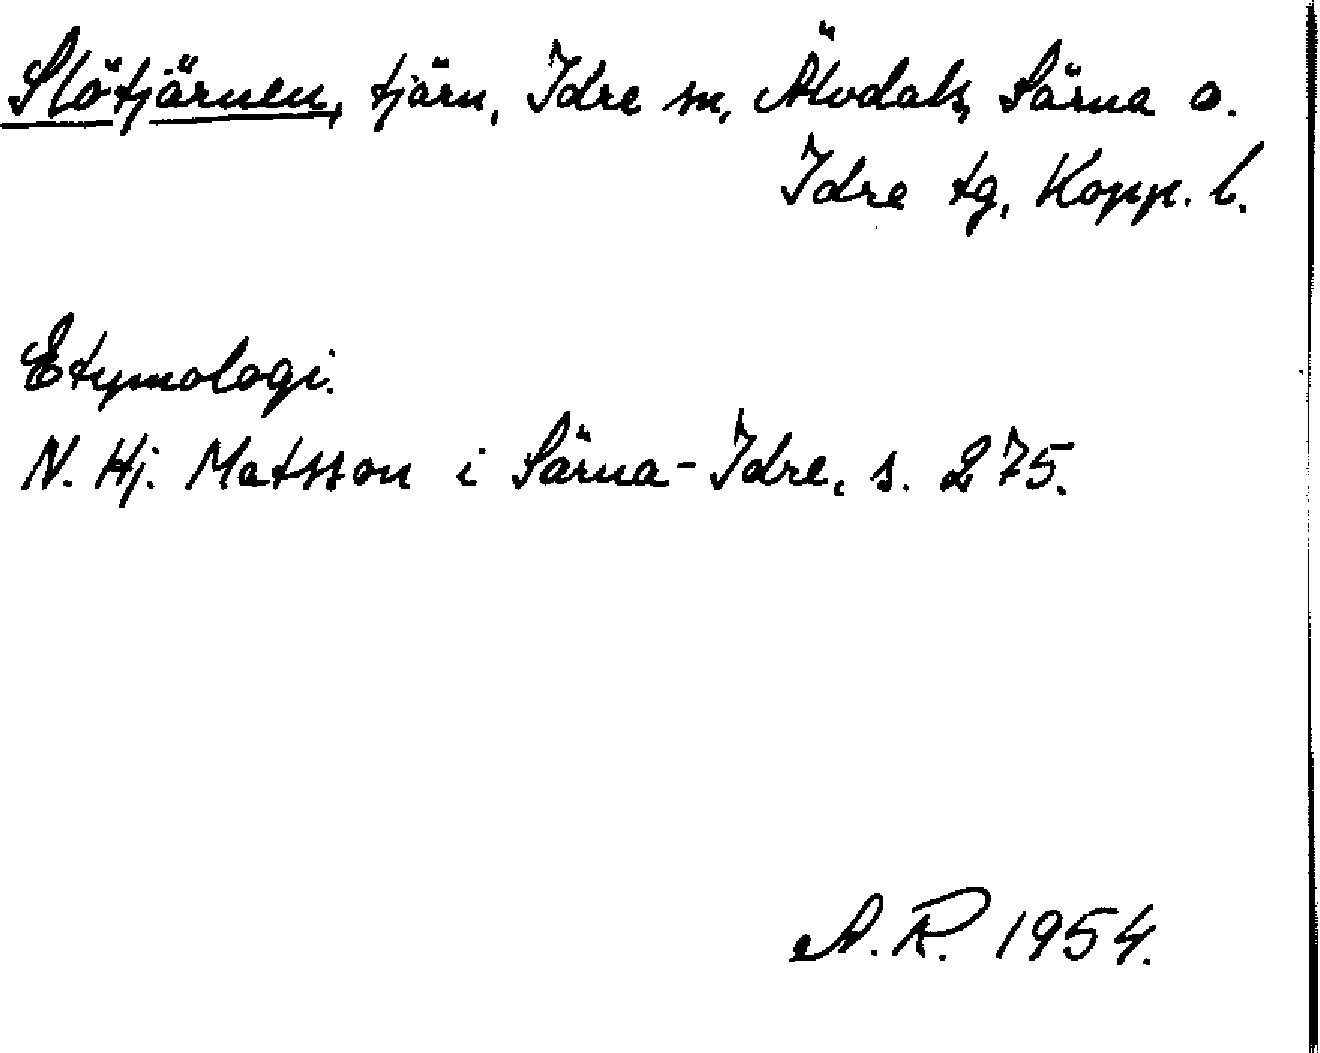 Slötjärnen, tjärn, Idre sn, Älvdals, Särna o.
Idre tg, Kopp. l.
Etymologi.
N. Hj. Matsson i Särna-Idre, s. 275.
A. R. 1954.